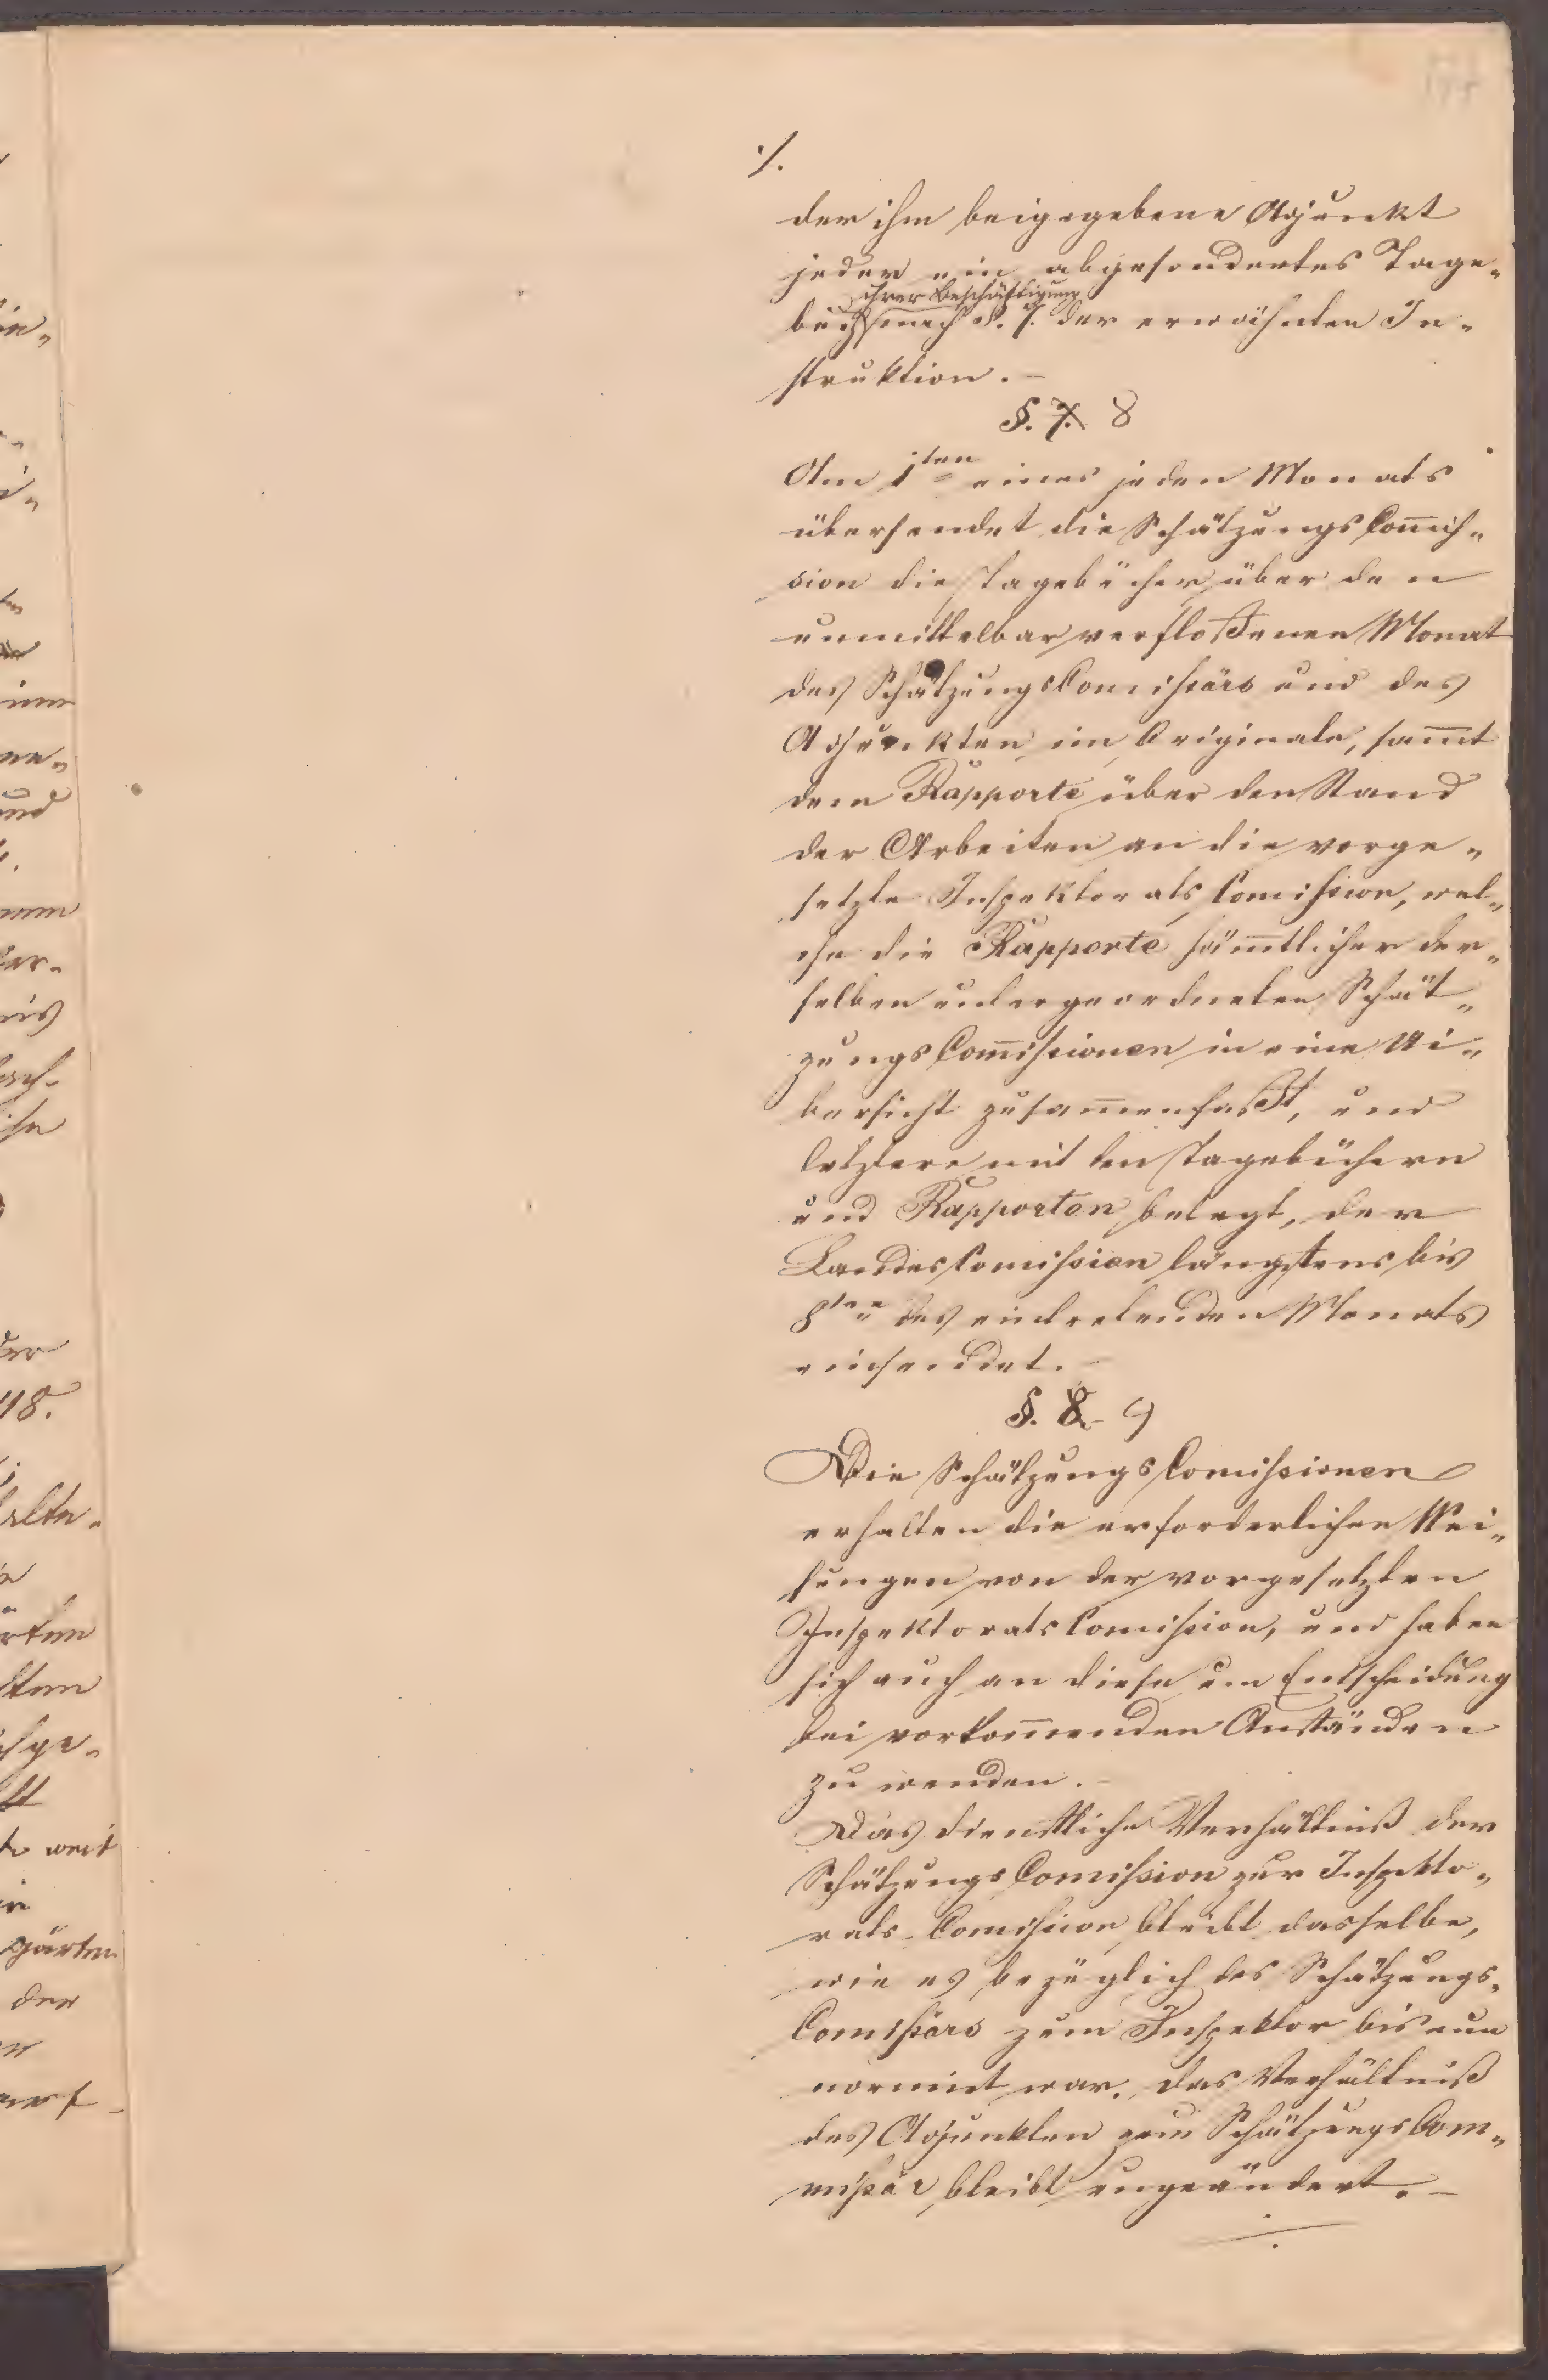 ·/.
der ihm beigegebene Adjunkt
jeder ein abgesondertes Tage-
ihrer Beschäftigung
buch nach §. 7. der erwähnten In-
struktion. –
§. 7. 8
Am 1ten eines jeden Monats
übersendet die Schätzungs Com̅iß-
sion die Tagebücher über den
unmittelbar verfloßenen Monat
des Schätzungs Comißärs und des
Adjunkten im Originale, sam̅t
dem Rapporte über den Stand
der Arbeiten an die vorge-
setzte Inspektorats Comißion, wel-
che die Rapporte säm̅tlicher der-
selben untergeordneten Schät-
zungs Com̅ißionen in eine Ui-
bersicht zusam̅enfaßt, und
letztere mit den Tagebüchern
und Rapporten belegt, der
Landes Comißion längstens bis
8ten des eintretenden Monats
einsendet. –
§. 8. 9
Die Schätzungs Comißionen
erhalten die erforderlichen Wei-
sungen von der vorgesetzten
Inspektorats Comißion, und haben
sich auch an diese um Entscheidung
bei vorkom̅enden Anständen
zu wenden. –
Das dienstliche Verhältniß der
Schätzungs Comißion zur Inspekto-
rats-Comißion bleibt dasselbe,
wie es bezüglich des Schätzungs-
Comißärs zum Inspektor bis nun
normirt war. Das Verhältniß
des Adjunkten zum Schätzungs Com-
mißär bleibt ungeändert. –